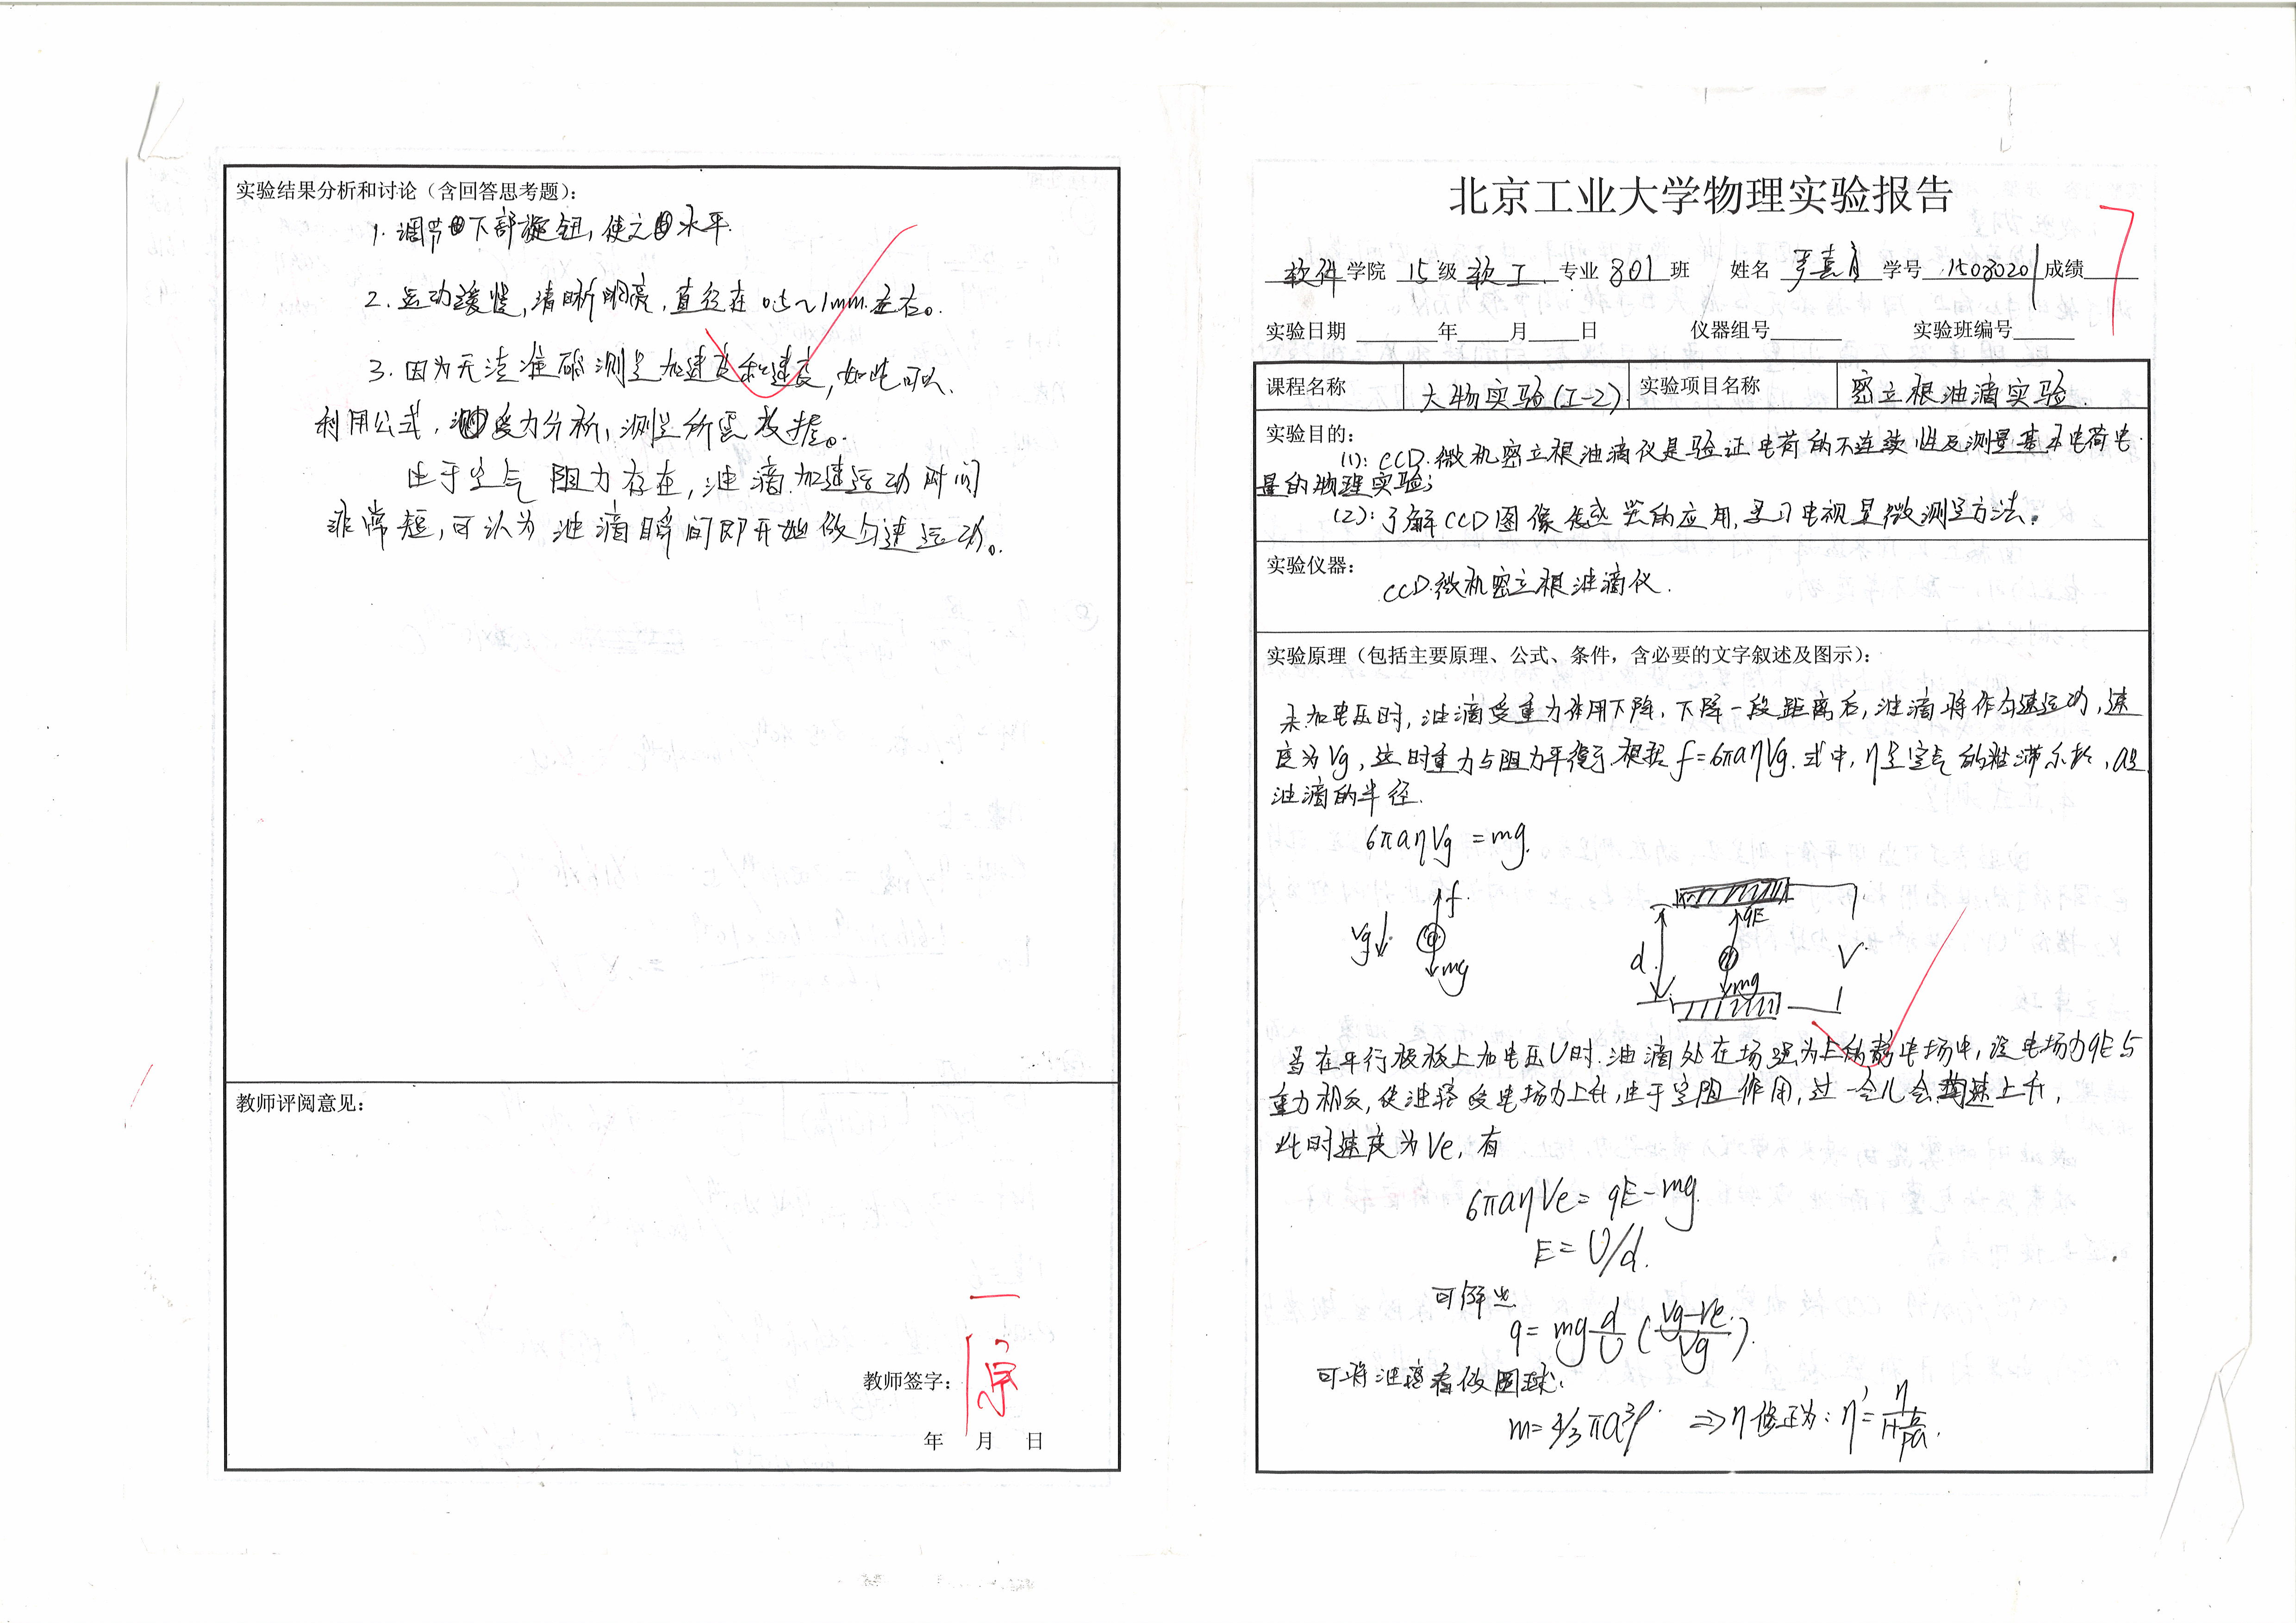 实验结果分析和讨论（含回答思考题）：
1. 调节下部旋钮, 使之水平.
2. 运动缓慢, 清晰明亮, 直径在 0.5~1mm 左右。
3. 因为无法准确测定加速度和速度, 如此可以
利用公式, 受力分析, 测定所需数据。
由于空气阻力存在, 油滴加速运动时间
非常短, 可认为油滴瞬间即开始做匀速运动。
教师评阅意见：
教师签字：
年 月 日
北京工业大学物理实验报告
软件 学院 15 级 软工 专业 801 班 姓名 学号 15080201 成绩
实验日期 年 月 日 仪器组号 实验班编号
课程名称 大物实验(I-2). 实验项目名称 密立根油滴实验.
实验目的：
(1): CCD.微机密立根油滴仪是验证电荷的不连续性及测量基本电荷电
量的物理实验;
(2): 了解CCD图像传感器的应用, 学习电视显微测量方法.
实验仪器：
CCD.微机密立根油滴仪.
实验原理（包括主要原理、公式、条件，含必要的文字叙述及图示）：
未加电压时, 油滴受重力作用下降, 下降一段距离后, 油滴将作匀速运动, 速
度为Vg, 此时重力与阻力平衡, 根据 f=6πaηVg. 式中, η是空气的粘滞系数, a是
油滴的半径.
6πaηVg = mg.
f
Vg
mg
qE
d
V
mg
当在平行极板上加电压U时. 油滴处在场强为E的静电场中, 设电场力qE与
重力相反, 使油滴受电场力上升, 由于空阻作用, 过一会儿会匀速上升,
此时速度为Ve, 有
6πaηVe = qE-mg.
E= U/d.
可解出
q= mg d/U (Vg-Ve/Vg).
可将油滴看做圆球:
m= 4/3 πa³ρ. ⇒ η修正为: η'= η/(1+b/pa).